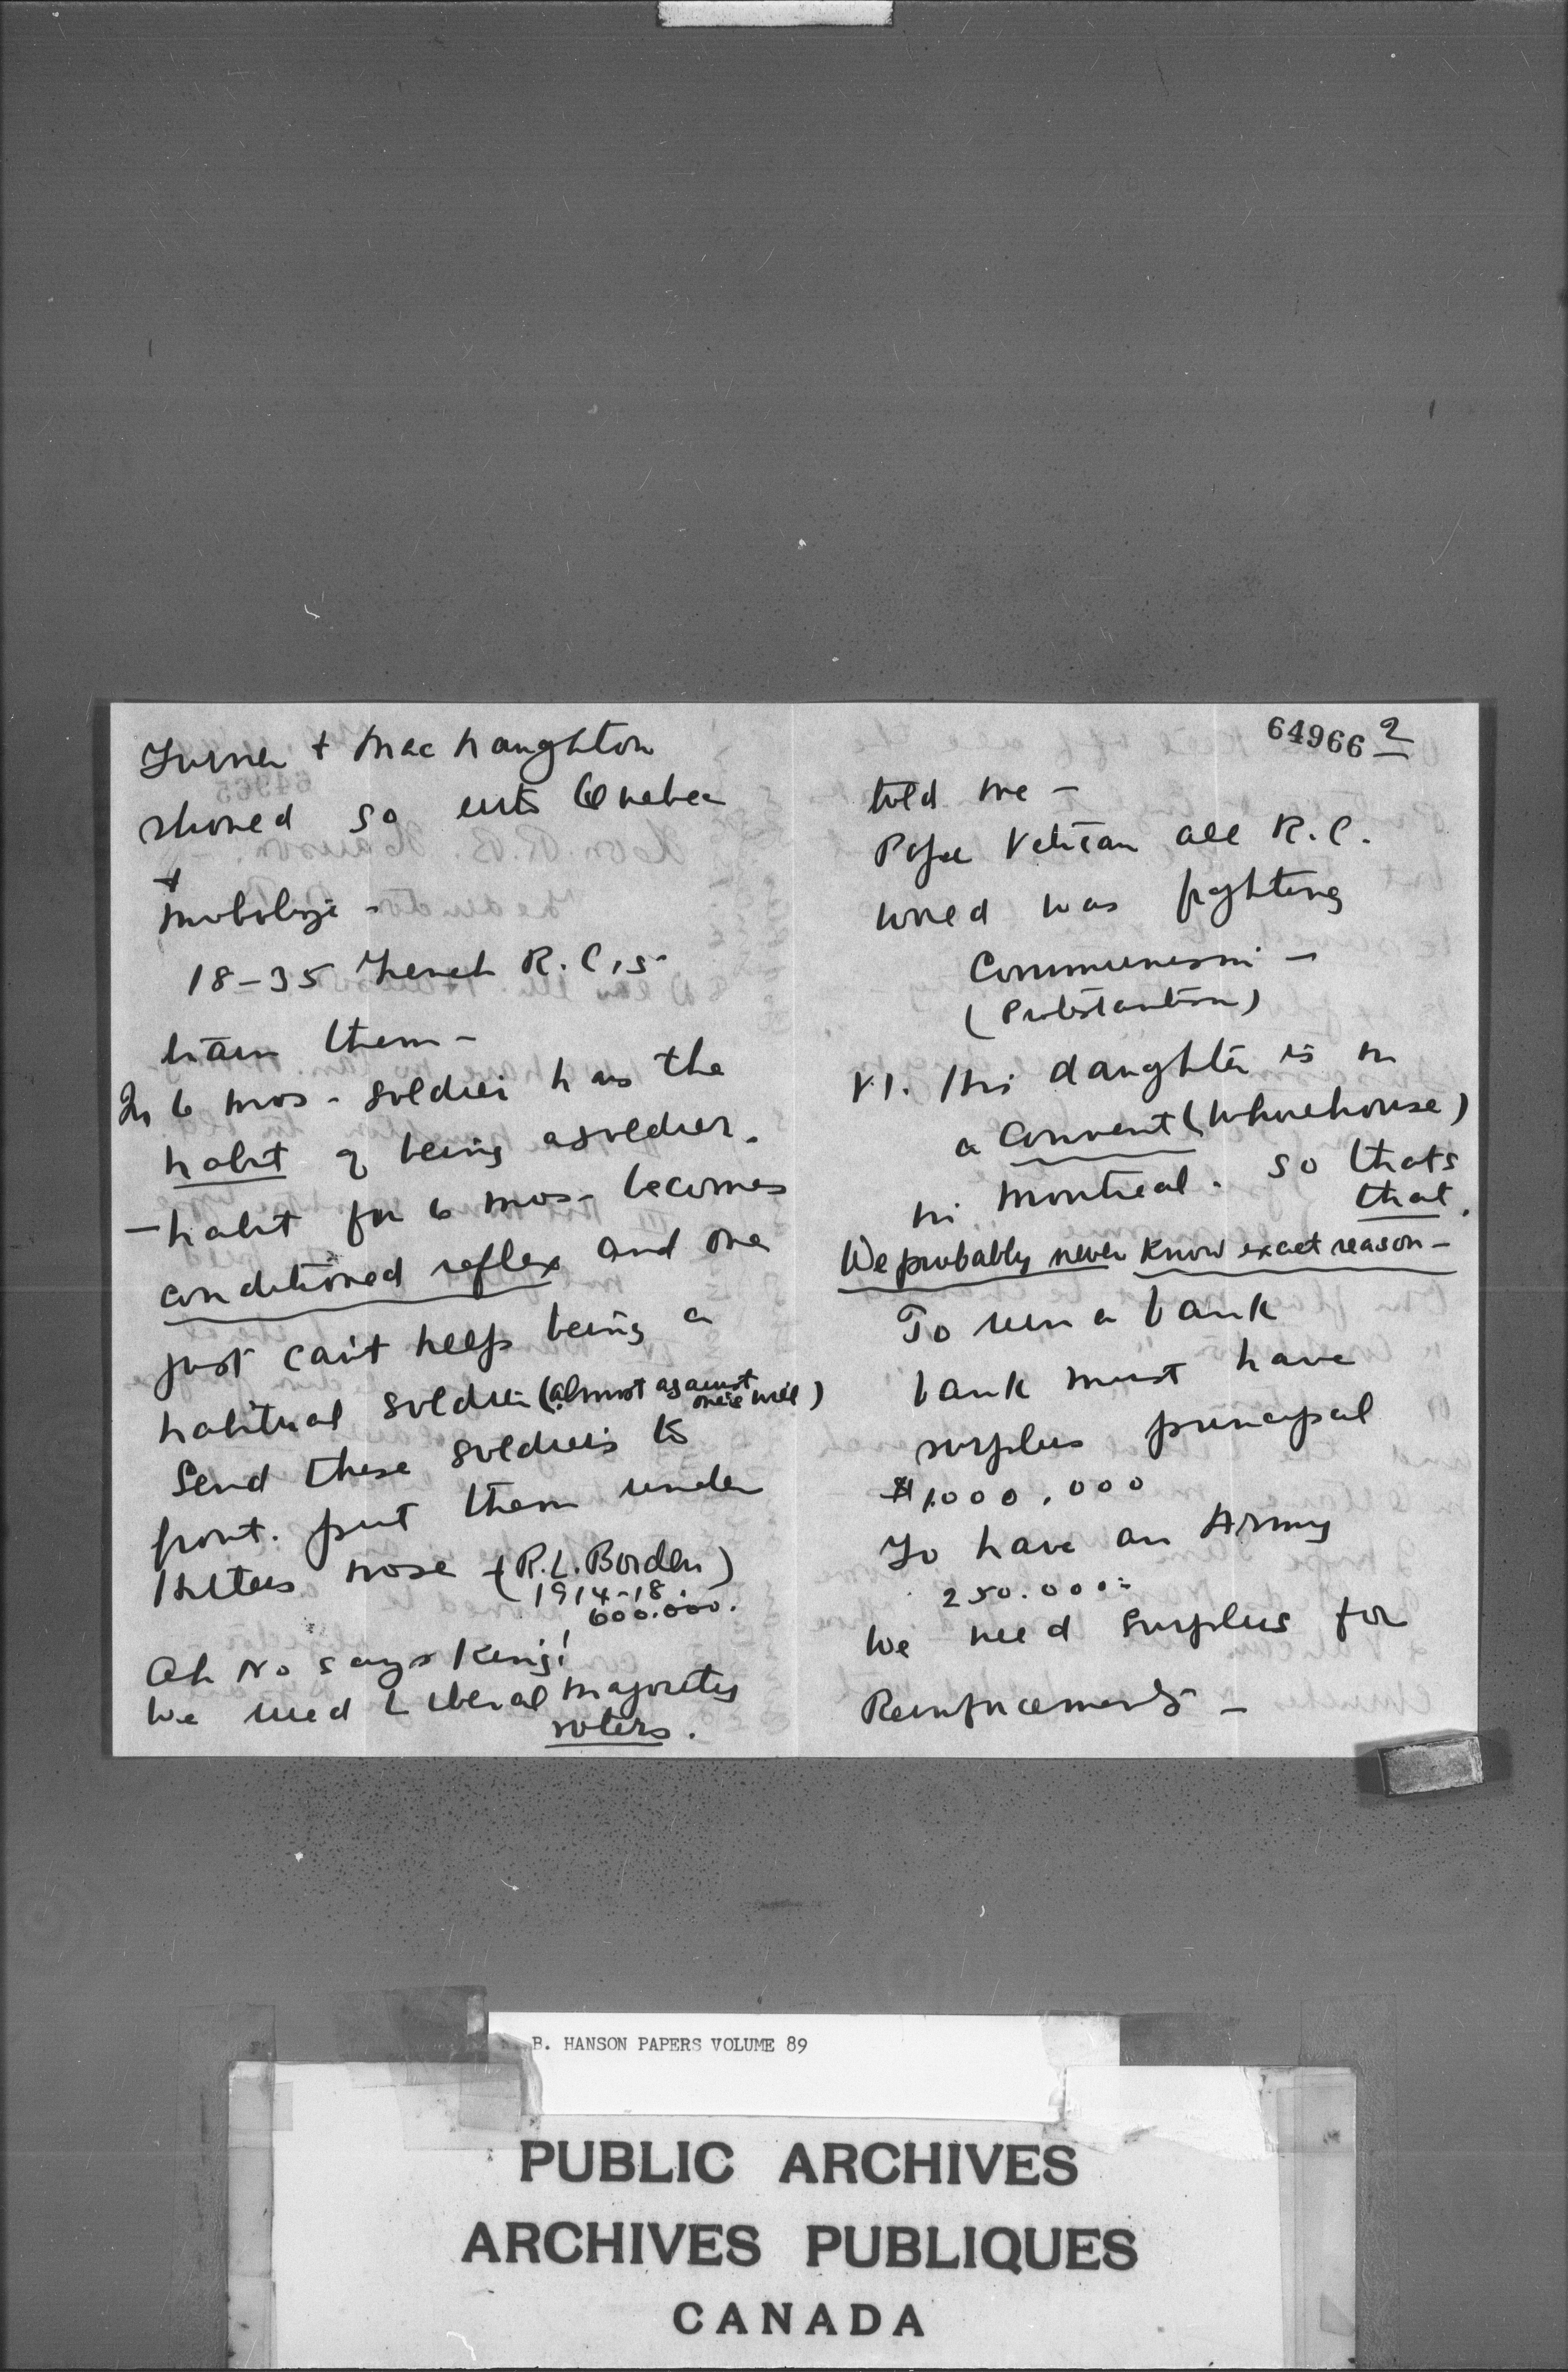 Turner + MacNaughton
shoved so into Quebec
+
mobolize -
18-35 French R.C,s
train them -
In 6 mos - soldier has the
habit of being a soldier.
- habit for 6 mos - becomes
conditioned reflex and one
just can't help being a
habitual soldier (almost against
one's will)
Send these soldiers to
front. put them under
Hitlers nose - (R.L. Borden)
1914-18
600.000.
Oh No says King!
We need Liberal majority
voters.
64966 2
told me -
Pope Vatican all R.C.
world was fighting
Communism -
(Protestantism)
VI. His daughter is in
a Convent (whorehouse)
in Montreal. so thats
that.
We probably never know exact reason -
To run a bank
bank must have
surplus principal
$1,000,000
To have an Army
250.000=
We need surplus for
Reinforcements -
B. HANSON PAPERS VOLUME 89
PUBLIC ARCHIVES
ARCHIVES PUBLIQUES
CANADA